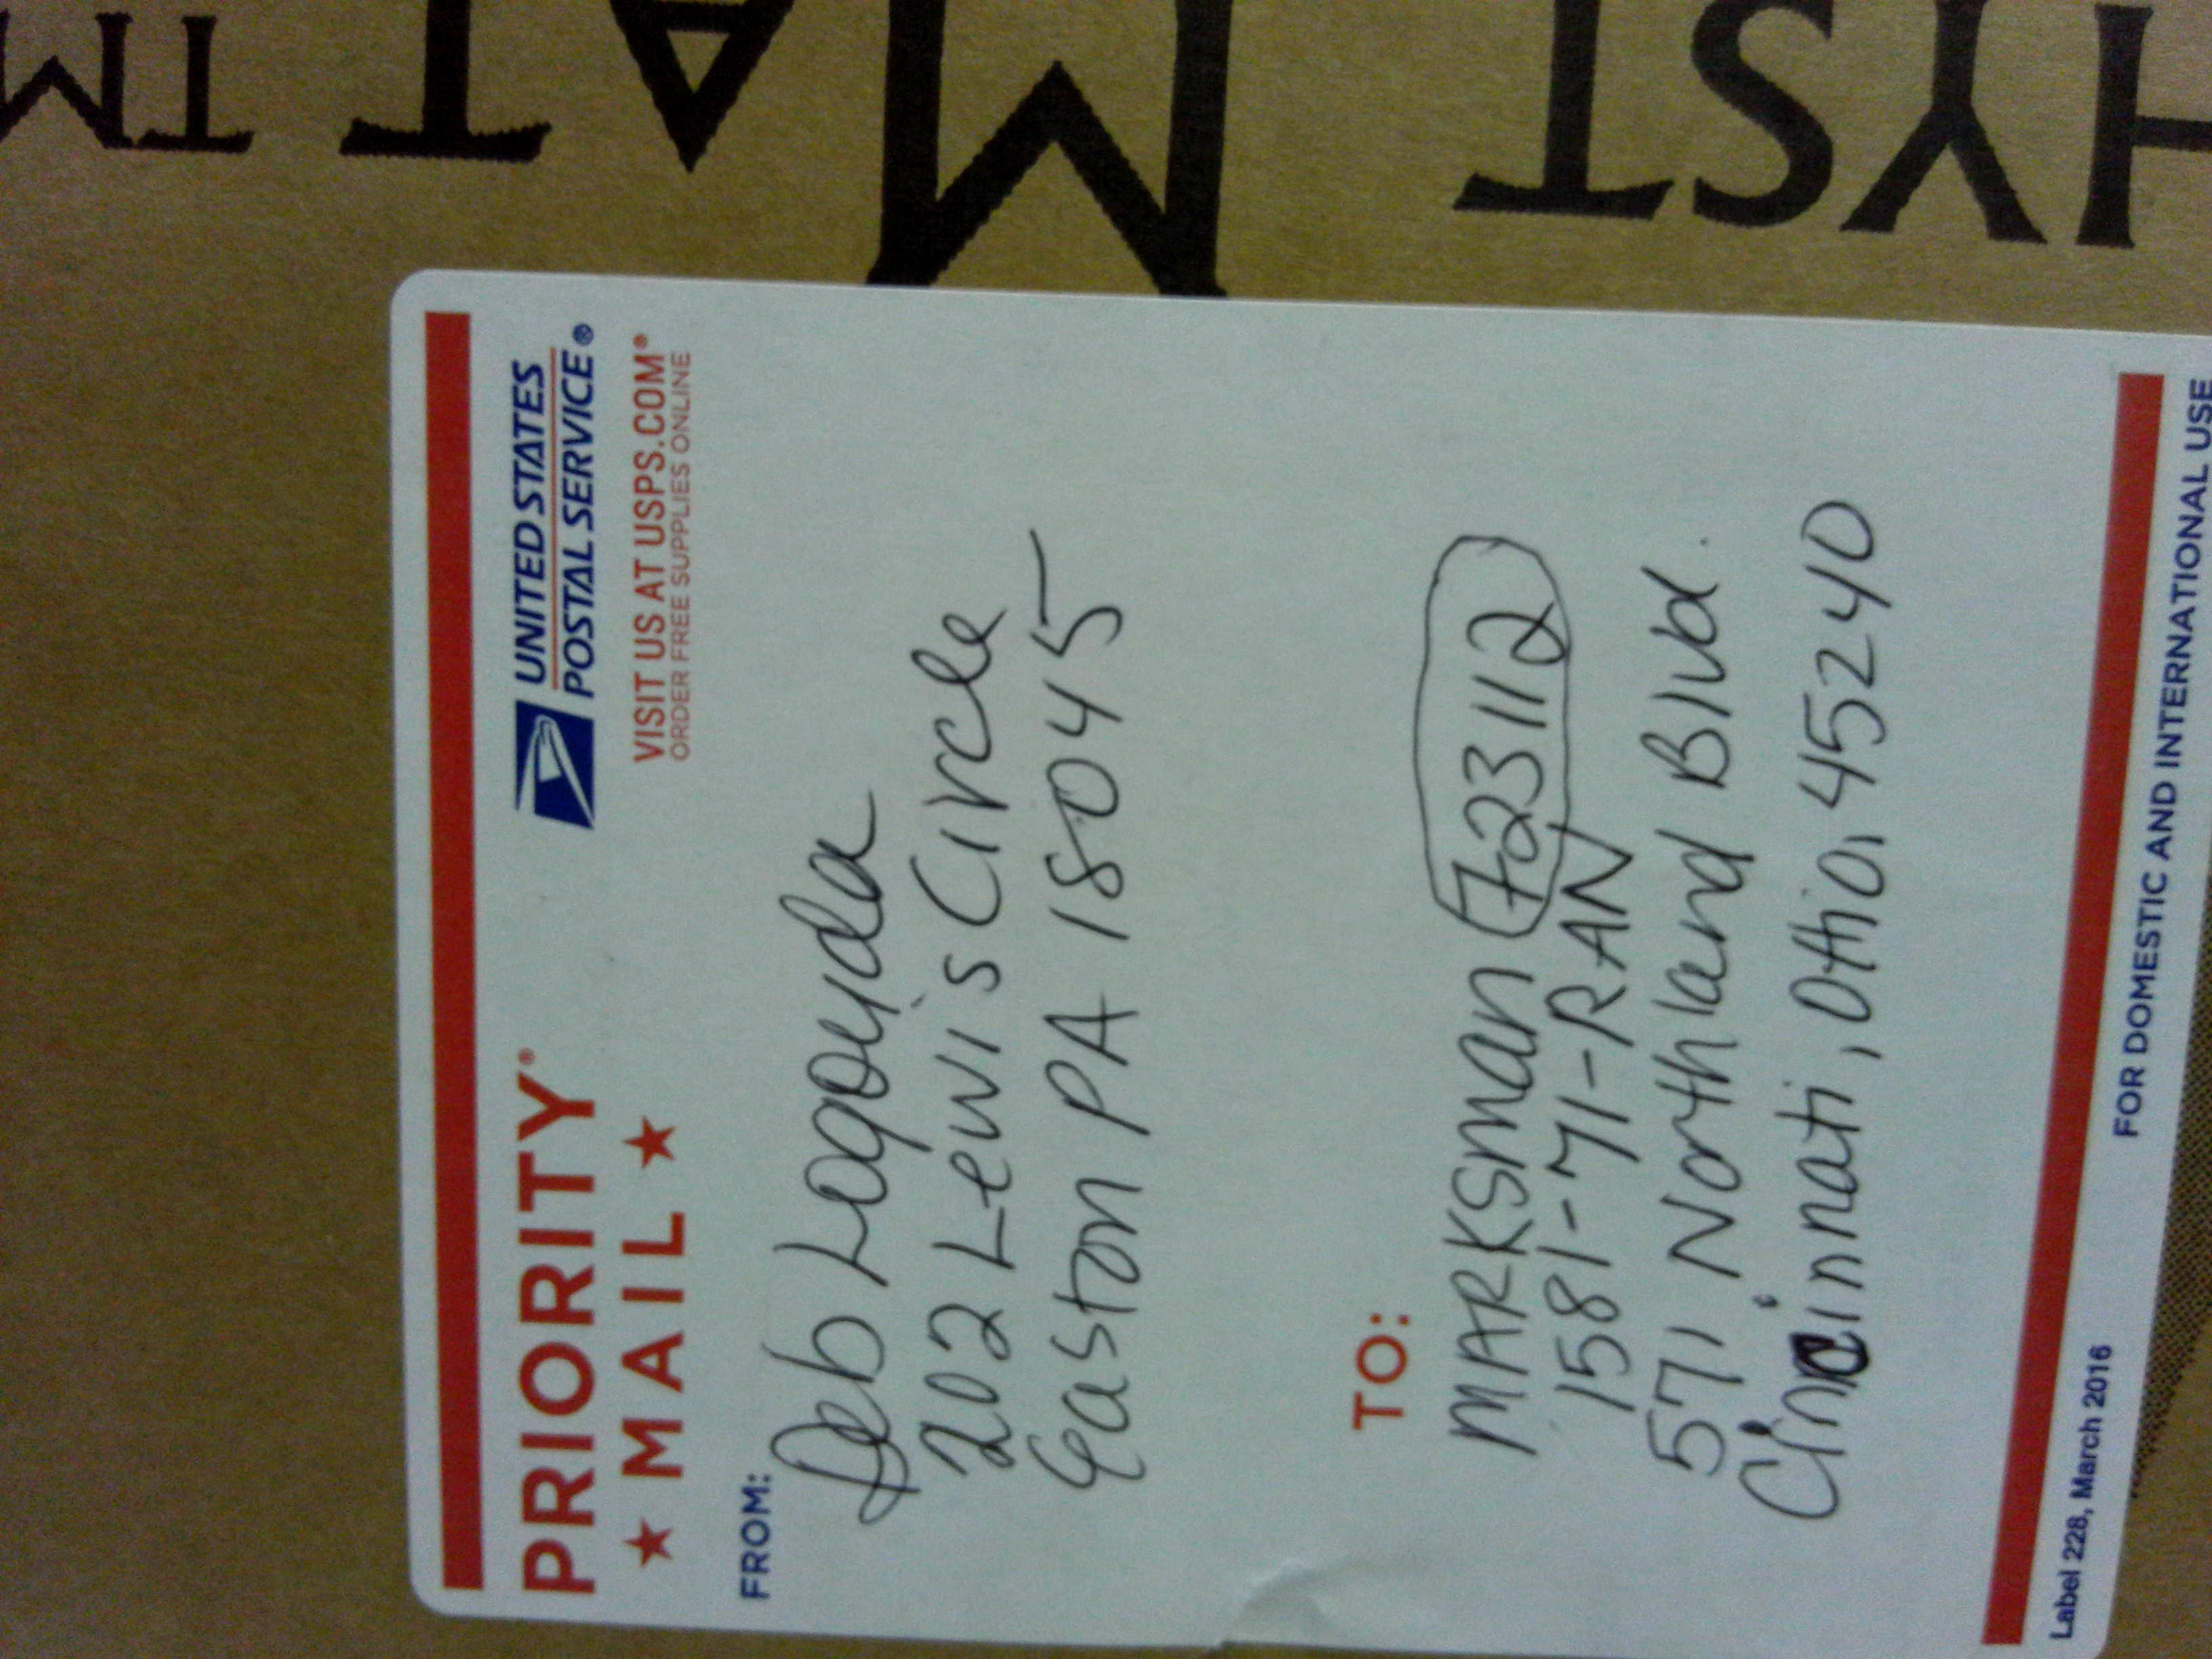 PRIORITY®
★ MAIL ★
UNITED STATES
POSTAL SERVICE®
VISIT US AT USPS.COM®
ORDER FREE SUPPLIES ONLINE
FROM:
202 Lewis Circle
Easton PA 18045
TO:
MARKSman 723112
1581-71-RAN
571 Northland Blvd.
Cincinnati, Ohio, 45240
Label 228, March 2016
FOR DOMESTIC AND INTERNATIONAL USE
HYST
MAT
TM